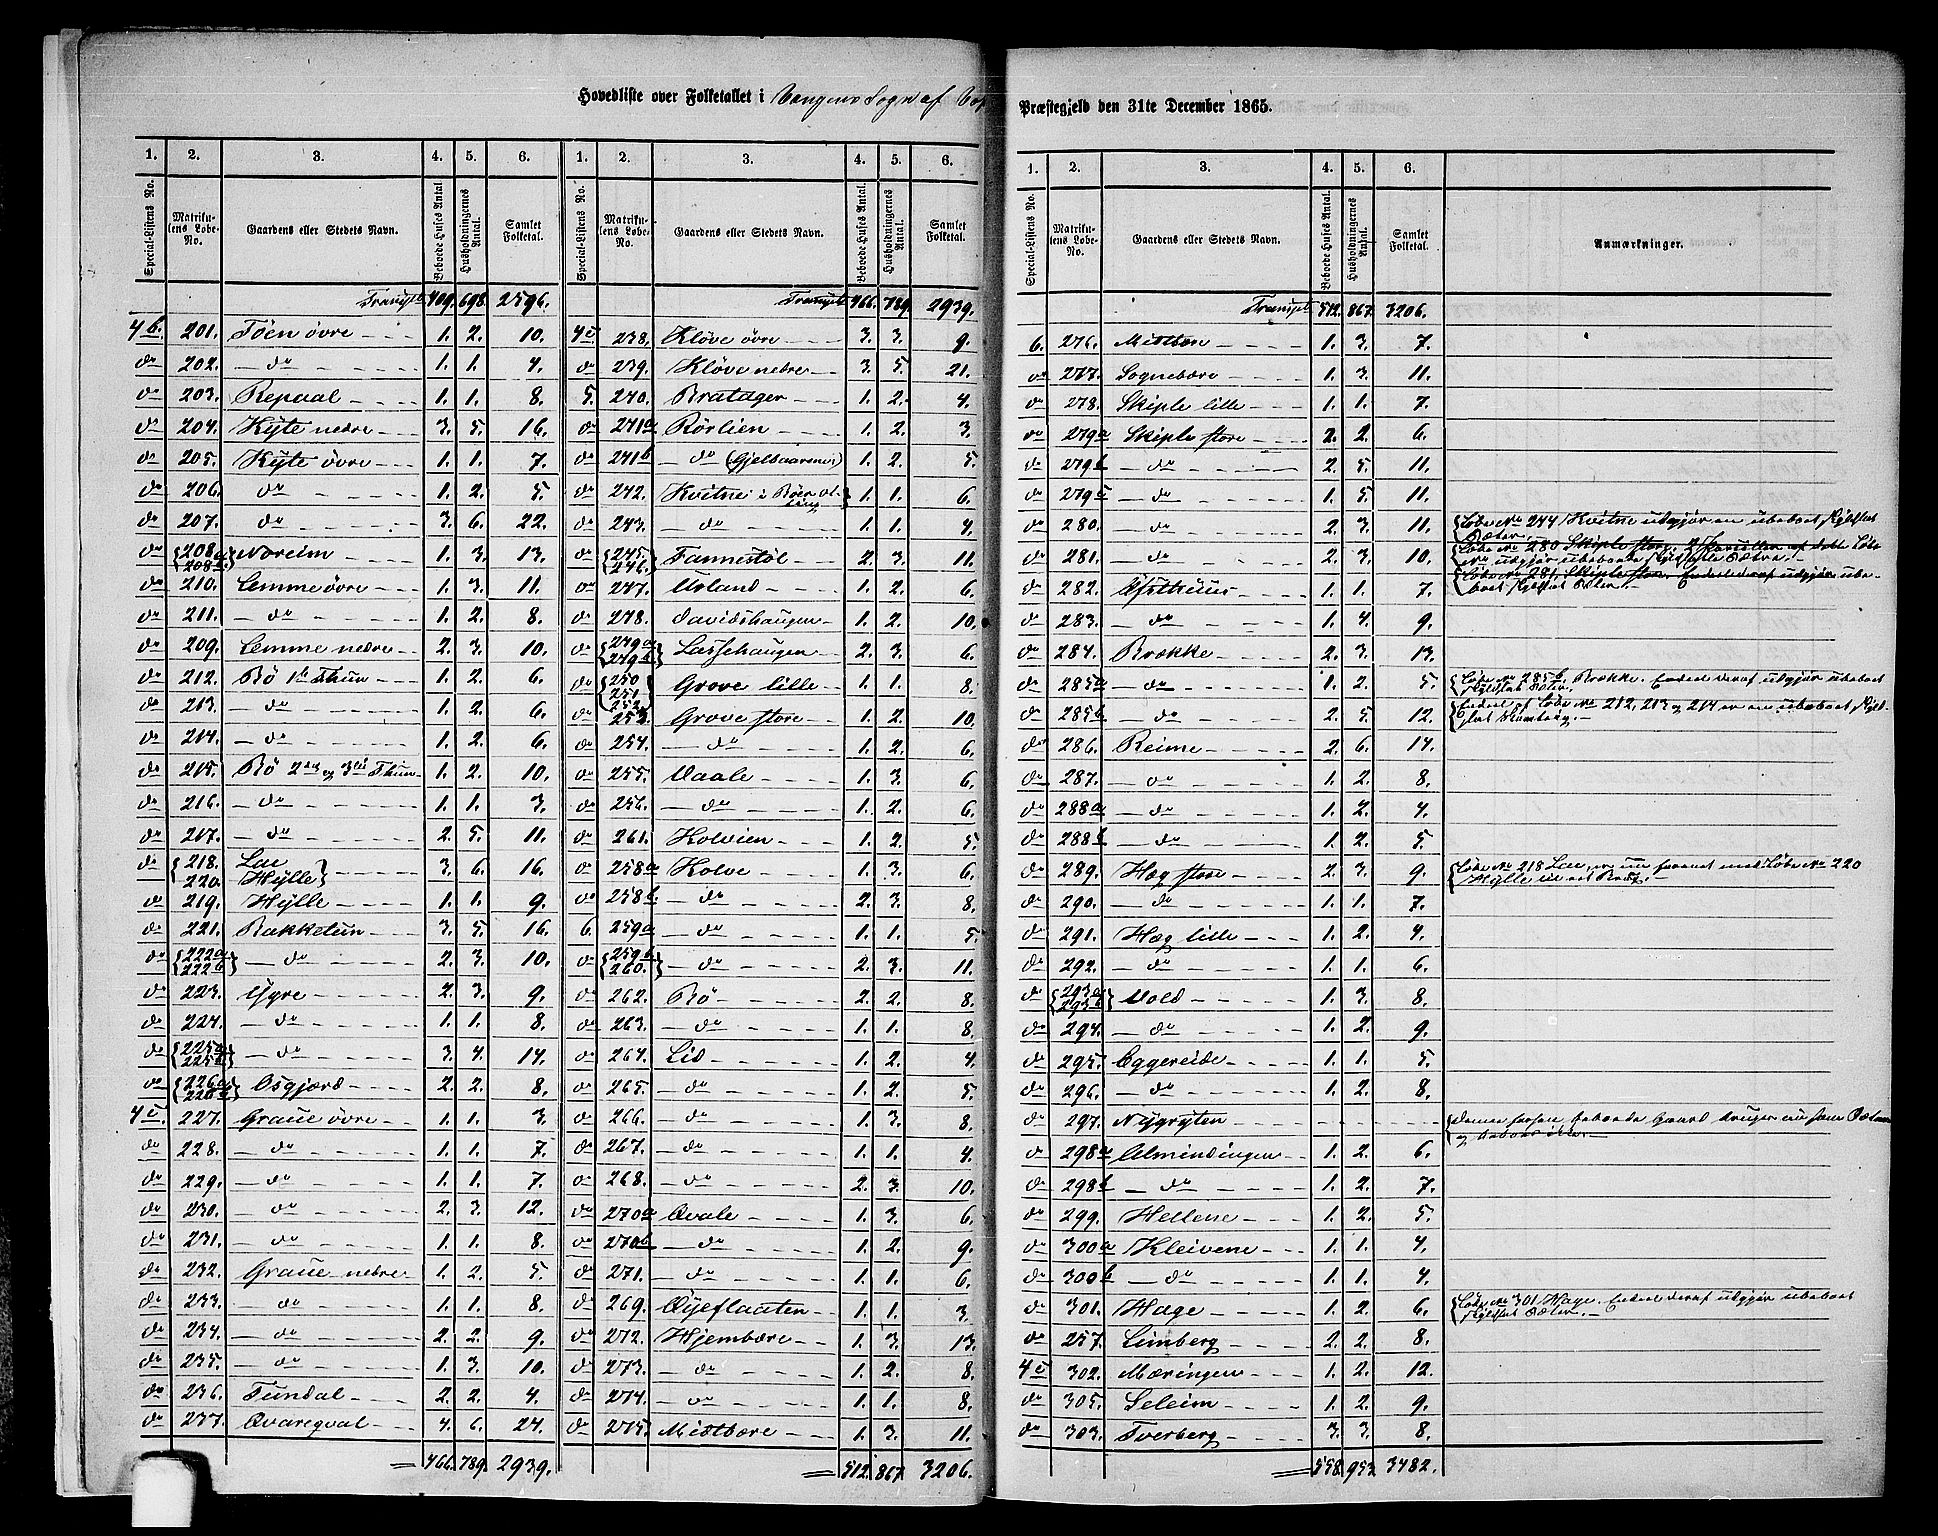 Hovedliste over Folketallet i Vangens Sogn af
Præstegjeld den 31te December 1865.
1. 2. 3. 4. 5. 6.
Special-Listens No. Matrikulens Løbe-No. Gaardens eller Stedets Navn. Beboede Huses Antal Husholdningernes Antal. Samlet Folketal.
Transpt 409. 698. 2596.
4 b. 201. Töen övre 1. 2. 10.
do 202. do 1. 1. 4.
do 203. Repaal 1. 1. 8.
do 204. Kyte nedre 3. 5. 16.
do 205. Kyte övre 1. 1. 7.
do 206. do 1. 2. 5.
do 207. do 3. 6. 22.
do 208a 208b Nøreim 1. 3. 13.
do 210. Lemme övre 1. 3. 11.
do 211. do 1. 2. 8.
do 209. Lemme nedre 2. 3. 10.
do 212. Bö 1te Thun 1. 2. 6.
do 213. do 1. 2. 6.
do 214. do 1. 2. 6.
do 215. Bö 2den og 3die Thun 1. 2. 10.
do 216. do 1. 1. 3.
do 217. do 2. 5. 11.
do 218. 220. Lae Hylle 3. 6. 16.
do 219. Hylle 1. 1. 9.
do 221. Rokketun 3. 5. 16.
do 222a 222b do 2. 3. 10.
do 223. Ygre 2. 3. 9.
do 224. do 1. 1. 8.
do 225a 225b do 3. 4. 14.
do 226a 226b Osgjerd 2. 2. 8.
4 c 227. Graue övre 1. 1. 3.
do 228. do 1. 1. 7.
do 229. do 1. 1. 7.
do 230. do 2. 3. 12.
do 231. do 1. 1. 8.
do 232. Graue nedre 1. 2. 5.
do 233. do 1. 1. 8.
do 234. do 2. 2. 9.
do 235. do 1. 3. 10.
do 236. Tundal 2. 2. 4.
do 237. Qvareqval 4. 6. 24.
466. 789. 2939.
1. 2. 3. 4. 5. 6.
Special-Listens No. Matrikulens Løbe-No. Gaardens eller Stedets Navn. Beboede Huses Antal. Husholdningernes Antal. Samlet Folketal.
Transpt 466. 789. 2939.
4 c 238. Klöve övre 3. 3. 9.
do 239. Klöve nedre 3. 5. 21.
5. 240. Bratager 1. 2. 4.
do 241a Rörlien 1. 2. 3.
do 241b do (Gjelbaarenes) 1. 2. 5.
do 242. Kvitne i 1. 1. 6.
do 243. do 1. 1. 4.
do 245. 246. Fannestöl 2. 3. 11.
do 247. Urland 1. 2. 6.
do 248. Davidshaugen 1. 2. 10.
do 249a 249b Lassehaugen 2. 3. 6.
do 250 251 252. Grove lille 1. 1. 8.
do 253. Grove store 1. 2. 10.
do 254. do 1. 2. 6.
do 255. Uaale 1. 3. 6.
do 256. do 1. 2. 6.
do 261. Kolvien 1. 2. 5.
do 258a Kolve 1. 3. 6.
do 258b do 2. 3. 8.
6. 259a do 1. 1. 5.
do 259b 260. do 2. 3. 11.
do 262. Bö 2. 2. 8.
do 263. do 1. 1. 8.
do 264. Lid 1. 2. 4.
do 265. do 1. 2. 5.
do 266. do 1. 3. 8.
do 267. do 1. 1. 4.
do 268. do 2. 3. 10.
do 270a Qvale 1. 3. 6.
do 270b do 1. 2. 9.
do 271. do 1. 1. 6.
do 269. Öyeflaaten 1. 1. 3.
do 272. Hjembære 1. 3. 13.
do 273. do 1. 2. 8.
do 274. do 1. 1. 8.
do 275. Midtbære 1. 3. 11.
512. 867. 3206.
1. 2. 3. 4. 5. 6.
Special-Listens No. Matrikulens Løbe-No. Gaardens eller Stedets Navn. Beboede Huses Antal. Husholdningernes Antal. Samlet Folketal. Anmærkninger.
Transpt 512. 867. 3206.
6. 276. Midtbære 1. 3. 7.
do 277. Sognebære 1. 3. 11.
do 278. Skiple lille 1. 1. 7.
do 279a Skiple store 2. 2. 6.
do 279b do 2. 5. 11.
do 279c do 1. 5. 11.
do 280. do 2. 3. 11. Löbe No 244 Kvitne udgjör en ubeboet Sæter.
do 281. do 2. 3. 10. Löbe No 280 Skiple store. af dette Löbe No udgjör ubeboede Sæter.
do 282. Afsthuus 1. 1. 7. Löbe No 281, Skiple store. Endeel deraf udgjör ubeboet Sæter.
do 283. do 1. 4. 9.
do 284. Brække 2. 3. 13.
do 285a do 1. 2. 5. Löbe No 285b, Brække. Endeel deraf udgjør ubeboet Sæter.
do 285b do 2. 5. 12. Endeel af Löbe No 212, 213 og 214 er en ubeboet
do 286. Reime 2. 6. 14.
do 287. do 1. 2. 8.
do 288a do 1. 2. 4.
do 288b do 1. 2. 5.
do 289. Hæg store 2. 3. 9. Löbe No 218 Lae, er nu forenet med Löbe No 220 Hylle til eet Brug.
do 290. do 1. 1. 7.
do 291. Hæg lille 1. 2. 4.
do 292. do 1. 1. 6.
do 293a 293b Uold 1. 3. 8.
do 294. do 1. 2. 9.
do 295. Eggereide 1. 1. 5.
do 296. do 1. 2. 8.
do 297. Nygryten Denne forhen beboede Gaard bruges nu som Sæter
do 298a Almindingen 1. 2. 6.
do 298b do 1. 2. 7.
do 299. Hellene 1. 2. 5.
do 300a Kleivene 1. 1. 4.
do 300b do 1. 1. 4.
do 301. Hage 1. 2. 6. Löbe No 301 Hage. Endeel deraf udgjör ubeboet Sæter.
do 257. Limberg 2. 2. 8.
4 c 302. Mæringen 1. 2. 12.
do 305. Seleim 1. 2. 9.
do 303. Tverberg 3. 3. 8.
558. 953. 3482.